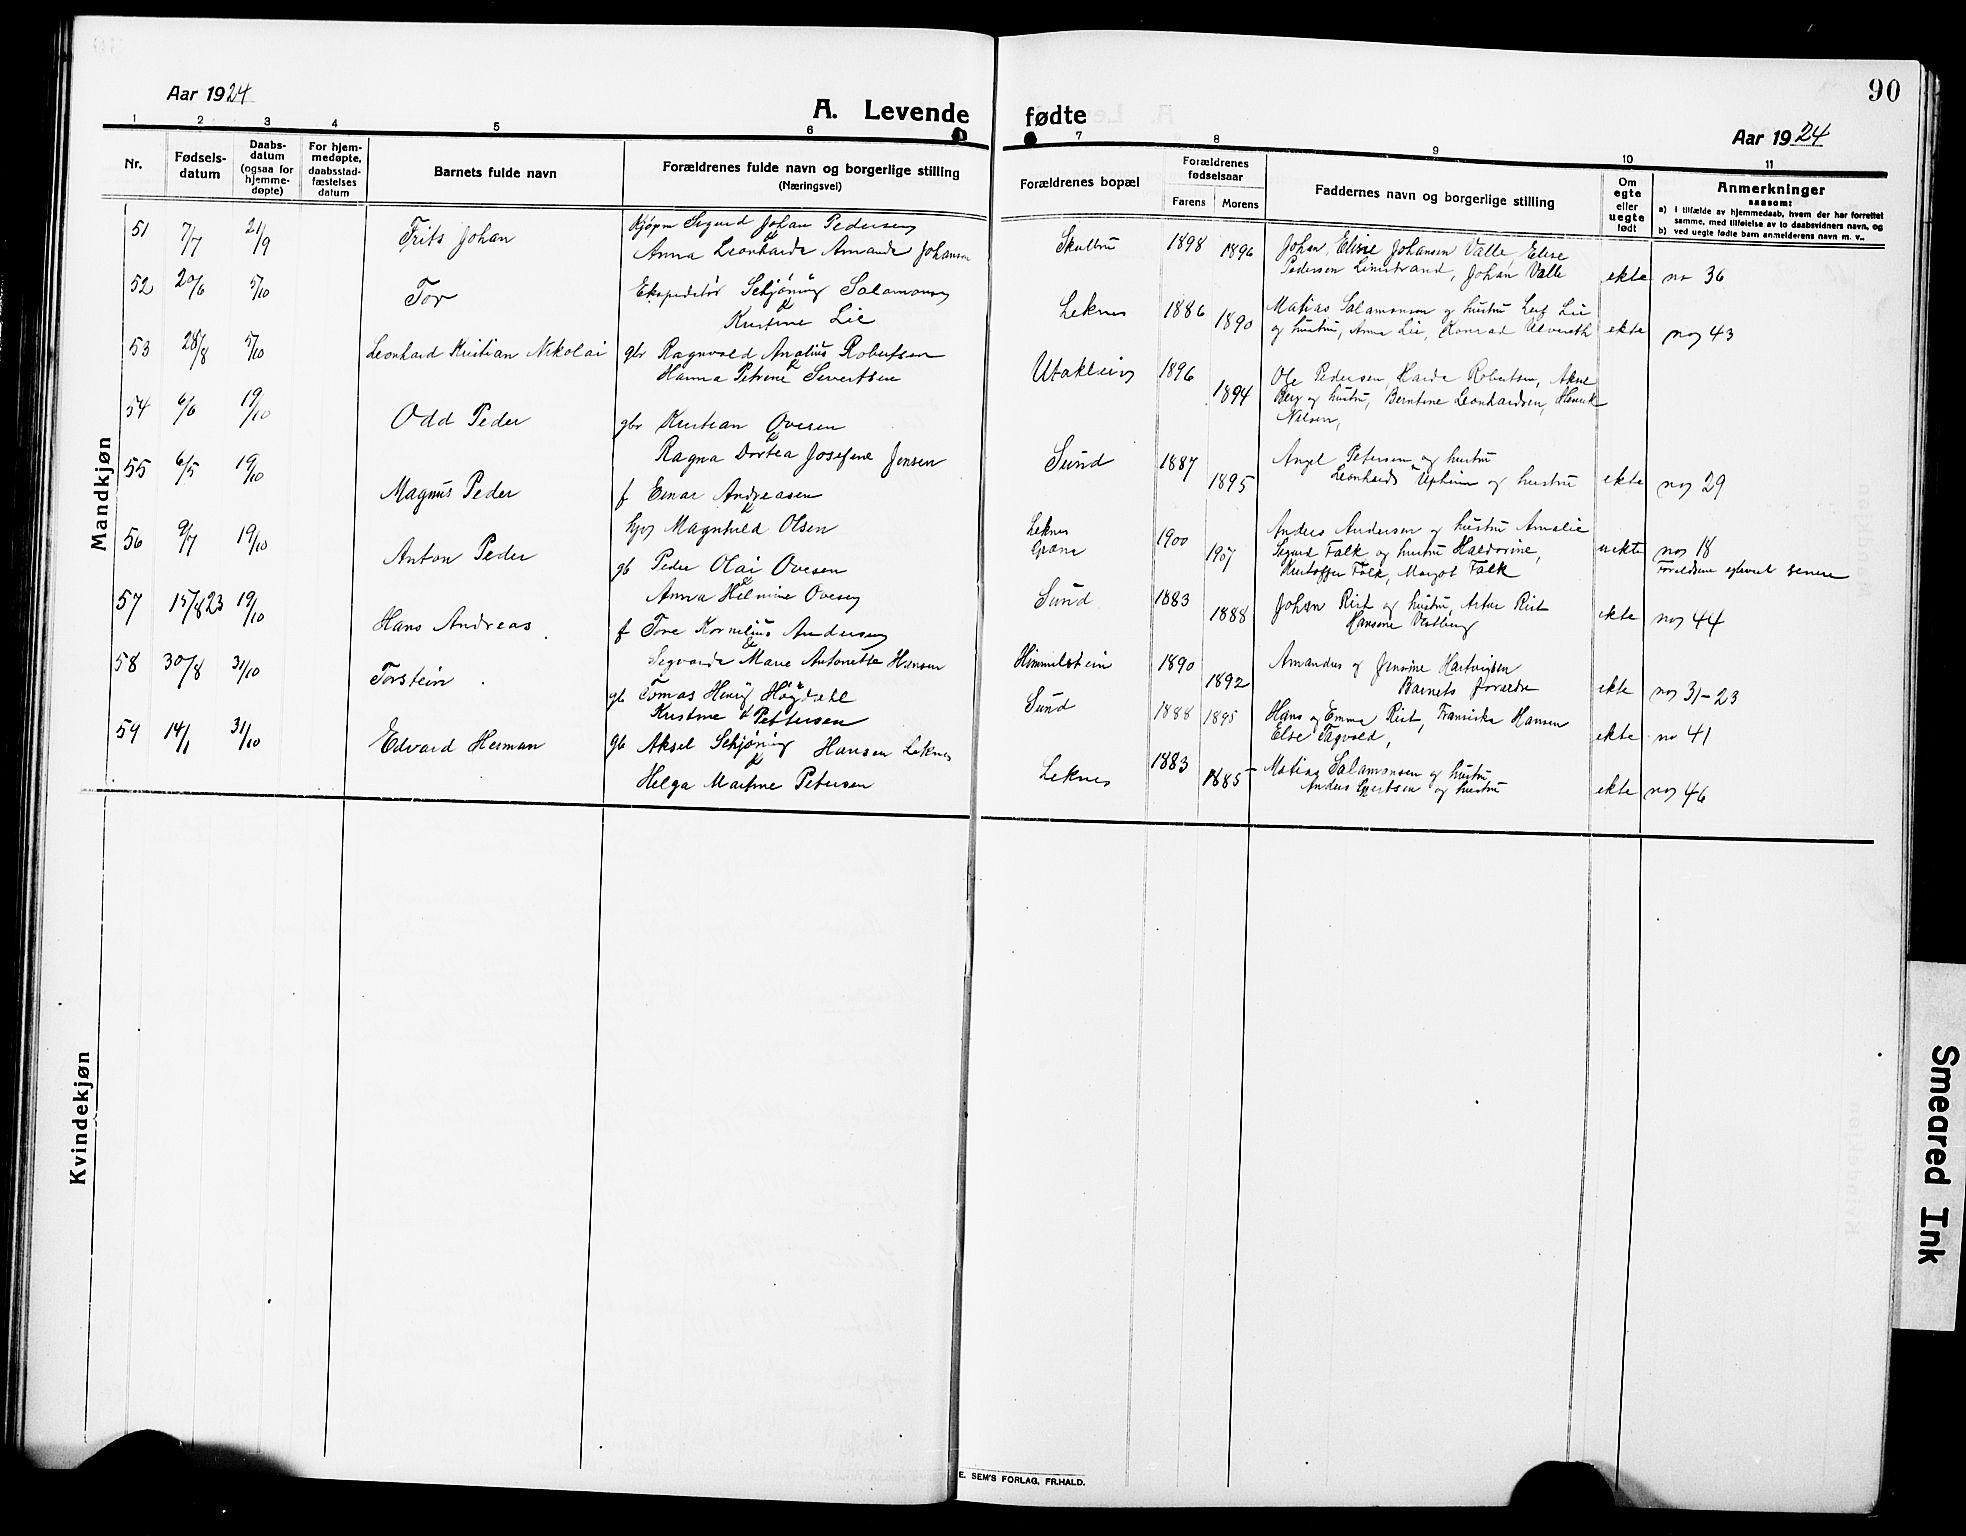 90
Aar 1924
A. Levende fødte
Aar 1924
1 2 3 4 5 6 7 8 9 10 11
Nr.
Fødsels-
datum
Daabs-
datum
(ogsaa for
hjemme-
døpte)
For hjem-
medøpte,
daabsstad-
fæstelses
datum
Barnets fulde navn
Forældrenes fulde navn og borgerlige stilling
(Næringsvei)
Forældrenes bopæl
Forældrenes
fødselsaar
Farens Morens
Faddernes navn og borgerlige stilling
Om
egte
eller
uegte
født
Anmerkninger
saasom:
a) I tilfælde av hjemmedaab, hvem der har forrettet
samme, med tilføielse av to daabsvidners navn, og
b) ved uegte fødte barn anmelderens navn m. v..
Mandkjøn
51 7/7 21/9 Frits Johan Sigurd Johan Pedersen
Anna Leonharde Amanda Johansen
1898 1896 Johan, Elise Johansen Valle, Elise
Pedersen Limstrand, Johan Valle ekte no 36
52 20/6 5/10 Tor Ekspeditør Schjøning Salamonsen
&
Kristine Lie
Leknes 1886 1890 Matias Salamonsen og hustru Leif Lie
og hustru, Anna Lie, Konrad ekte no 43
53 28/8 5/10 Leonhard Kristian Nikolai gbr Ragnvald Analius Robertsen
&
Hanna Petrine Sivertsen
Utakleiv 1896 1894 Ole Pedersen, Harda Robertsen, Aksel
Berg og hustru, Berntine Leonhardsen, Henrik
Nilsen,
54 6/6 19/10 Odd Peder gbr Kristian Ovesen
&
Ragna Dortea Josefine Jensen
Sund 1887 1895 Angel Petersen og hustru
Leonhards og hustru ekte no 29
55 6/5 19/10 Magnus Peder f Einar Andreasen
&
Magnhild Olsen
Leknes
1900 1907 Anders Andersen og hustru Amalie
Sigurd Falk og hustru Haldorine,
Kristoffer Falk, Margot Falk uekte no 18
senere
56 9/7 19/10 Anton Peder gb Peder Olai Ovesen
&
Anna Helmine Ovesen
Sund 1883 1888 Johan Rist og hustru, Artur Rist
Hansine ekte no 44
57 15/8 23 19/10 Hans Andreas f Tore Kornelius Andersen
&
Sigvarda Marie Antonette Hansen
Himmelstein 1890 1892 Amandus og Jensine Hartvigsen
Barnets forældre ekte no 31-23
58 30/8 31/10 Torstein gb Tomas Henrij Høgdahl
Kristine & Pettersen
Sund 1888 1895 Hans og Emma Rist, Fransiska Hansen
Else Tagvold, ekte no 41
59 14/1 31/10 Edvard Herman gb Aksel Schjøning Hansen Leknes
&
Helga Martine Petersen
Leknes 1883 1885 Matias Salamonsen og hustru
Anders og hustru ekte no 46
Kvindekjøn
E. SEM'S FORLAG, FR.HALD.
Smeared Ink